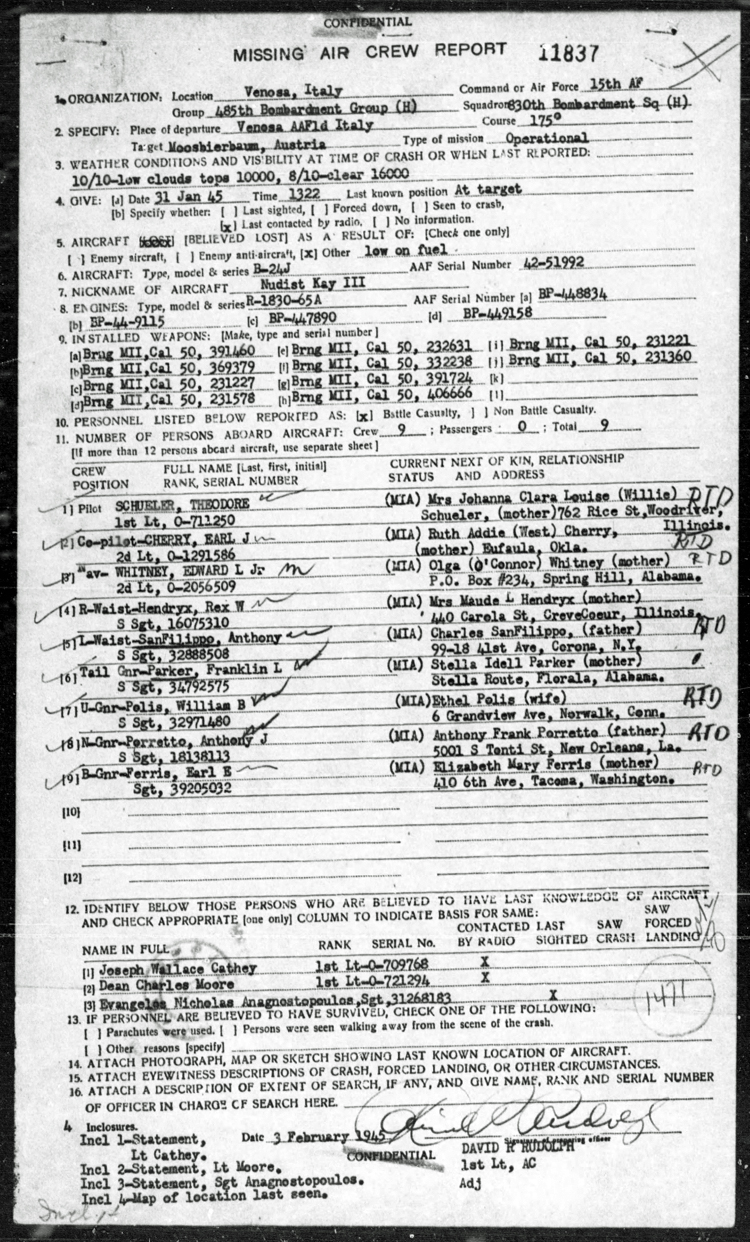 CONFIDENTIAL
MISSING AIR CREW REPORT 11837
1. ORGANIZATION: Location Venosa, Italy Command or Air Force 15th AF
Group 485th Bombardment Group (H) Squadron 830th Bombardment Sq (H)
2. SPECIFY: Place of departure Venosa AAFld Italy Course 175°
Target Moosbierbaum, Austria Type of mission Operational
3. WEATHER CONDITIONS AND VISIBILITY AT TIME OF CRASH OR WHEN LAST REPORTED:
10/10-low clouds tops 10000, 8/10-clear 16000
4. GIVE: [a] Date 31 Jan 45 Time 1322 Last known position At target
[b] Specify whether: [ ] Last sighted, [ ] Forced down, [ ] Seen to crash,
[x] Last contacted by radio, [ ] No information.
5. AIRCRAFT [BELIEVED LOST] AS A RESULT OF: [Check one only]
[ ] Enemy aircraft, [ ] Enemy anti-aircraft, [x] Other low on fuel
6. AIRCRAFT: Type, model & series B-24J AAF Serial Number 42-51992
7. NICKNAME OF AIRCRAFT Nudist Kay III
8. ENGINES: Type, model & series R-1830-65A AAF Serial Number [a] BP-448834
[b] BP-44-9115 [c] BP-447890 [d] BP-449158
9. INSTALLED WEAPONS: [Make, type and serial number]
[a] Brng MII, Cal 50, 391460 [e] Brng MII, Cal 50, 232631 [i] Brng MII, Cal 50, 231221
[b] Brng MII, Cal 50, 369379 [f] Brng MII, Cal 50, 332238 [j] Brng MII, Cal 50, 231360
[c] Brng MII, Cal 50, 231227 [g] Brng MII, Cal 50, 391724 [k]
[d] Brng MII, Cal 50, 231578 [h] Brng MII, Cal 50, 406666 [l]
10. PERSONNEL LISTED BELOW REPORTED AS: [x] Battle Casualty, [ ] Non Battle Casualty.
11. NUMBER OF PERSONS ABOARD AIRCRAFT: Crew 9 ; Passengers 0 ; Total 9
[If more than 12 persons aboard aircraft, use separate sheet]
CREW FULL NAME [Last, first, initial] CURRENT NEXT OF KIN, RELATIONSHIP
POSITION RANK, SERIAL NUMBER STATUS AND ADDRESS
[1] Pilot SCHUELER, THEODORE (MIA) Mrs Johanna Clara Louise (Willie) RTD
1st Lt, O-711250 Schueler, (mother) 762 Rice St, Woodriver, Illinois.
[2] Co-pilot-CHERRY, EARL J (MIA) Ruth Addie (West) Cherry, RTD
2d Lt, O-1291586 (mother) Eufaula, Okla.
[3] Nav- WHITNEY, EDWARD L Jr (MIA) Olga (O'Connor) Whitney (mother) RTD
2d Lt, O-2056509 P.O. Box #234, Spring Hill, Alabama.
[4] R-Waist-Hendryx, Rex W (MIA) Mrs Maude L Hendryx (mother)
S Sgt, 16075310 440 Carola St, CreveCoeur, Illinois.
[5] L-Waist-SanFilippo, Anthony (MIA) Charles SanFilippo, (father) RTD
S Sgt, 32888508 99-18 41st Ave, Corona, N.Y.
[6] Tail Gnr-Parker, Franklin L (MIA) Stella Idell Parker (mother)
S Sgt, 34792575 Stella Route, Florala, Alabama.
[7] U-Gnr-Polis, William B (MIA) Ethel Polis (wife) RTD
S Sgt, 32971480 6 Grandview Ave, Norwalk, Conn.
[8] N-Gnr-Porretto, Anthony J (MIA) Anthony Frank Porretto (father) RTD
S Sgt, 18138113 5001 S Tonti St, New Orleans, La.
[9] B-Gnr-Ferris, Earl E (MIA) Elizabeth Mary Ferris (mother) RTD
Sgt, 39205032 410 6th Ave, Tacoma, Washington.
[10]
[11]
[12]
12. IDENTIFY BELOW THOSE PERSONS WHO ARE BELIEVED TO HAVE LAST KNOWLEDGE OF AIRCRAFT,
AND CHECK APPROPRIATE [one only] COLUMN TO INDICATE BASIS FOR SAME:
NAME IN FULL RANK SERIAL No. CONTACTED BY RADIO LAST SIGHTED SAW CRASH SAW FORCED LANDING
[1] Joseph Wallace Cathey 1st Lt-O-709768 X
[2] Dean Charles Moore 1st Lt-O-721294 X
[3] Evangelos Nicholas Anagnostopoulos, Sgt, 31268183 X
1471
13. IF PERSONNEL ARE BELIEVED TO HAVE SURVIVED, CHECK ONE OF THE FOLLOWING:
[ ] Parachutes were used. [ ] Persons were seen walking away from the scene of the crash.
[ ] Other reasons [specify]
14. ATTACH PHOTOGRAPH, MAP OR SKETCH SHOWING LAST KNOWN LOCATION OF AIRCRAFT.
15. ATTACH EYEWITNESS DESCRIPTIONS OF CRASH, FORCED LANDING, OR OTHER CIRCUMSTANCES.
16. ATTACH A DESCRIPTION OF EXTENT OF SEARCH, IF ANY, AND GIVE NAME, RANK AND SERIAL NUMBER
OF OFFICER IN CHARGE OF SEARCH HERE.
4 Inclosures.
Incl 1-Statement, Date 3 February 1945
Lt Cathey. CONFIDENTIAL DAVID R RUDOLPH
Incl 2-Statement, Lt Moore. 1st Lt, AC
Incl 3-Statement, Sgt Anagnostopoulos. Adj
Incl 4-Map of location last seen.